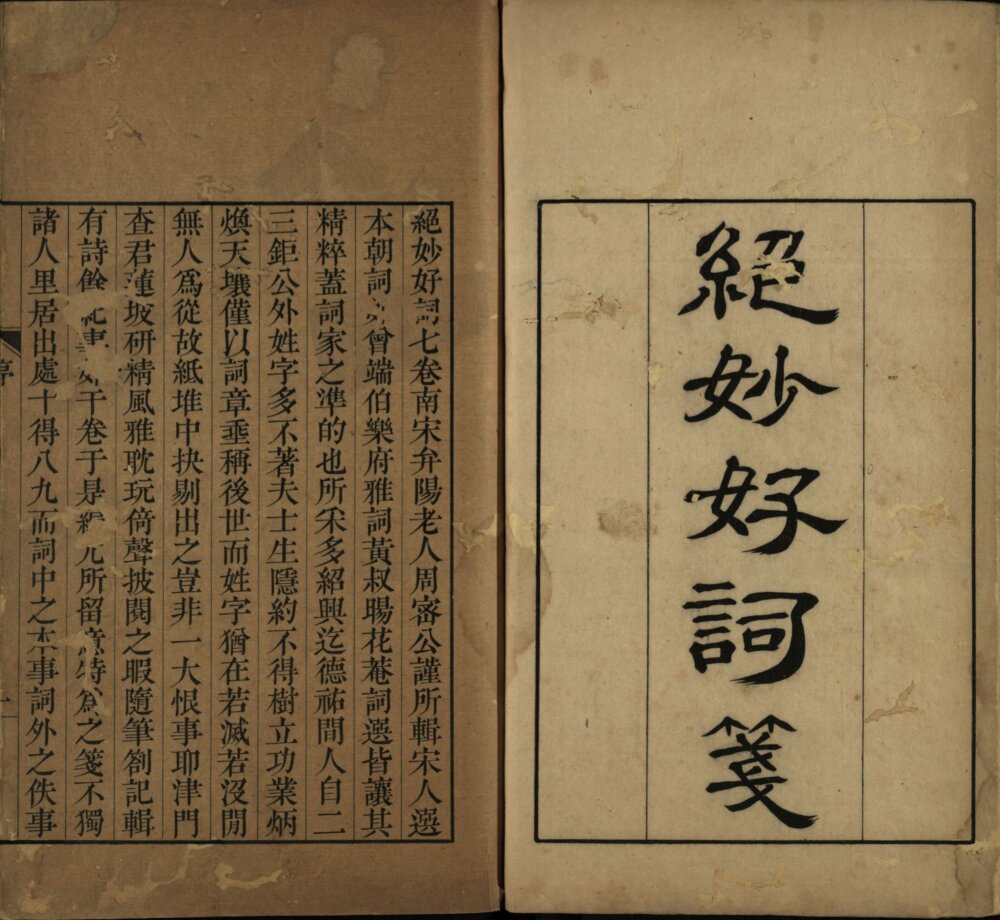 絕妙好詞箋
絕妙好詞七卷南宋弁陽老人周密公謹所輯宋人選
本朝詞曾端伯樂府雅詞黃叔暘花菴詞選皆讓其
精粹蓋詞家之準的也所采多紹興迄德祐間人自二
三鉅公外姓字多不著夫士生隱約不得樹立功業炳
煥天壤僅以詞章垂稱後世而姓字猶在若滅若沒間
無人爲從故紙堆中抉剔出之豈非一大恨事耶津門
查君蓮坡研精風雅耽玩倚聲披閱之暇隨筆劄記輯
有詩餘事干卷于是所留意特爲之箋不獨
諸人里居出處十得八九而詞中之本事詞外之佚事
序